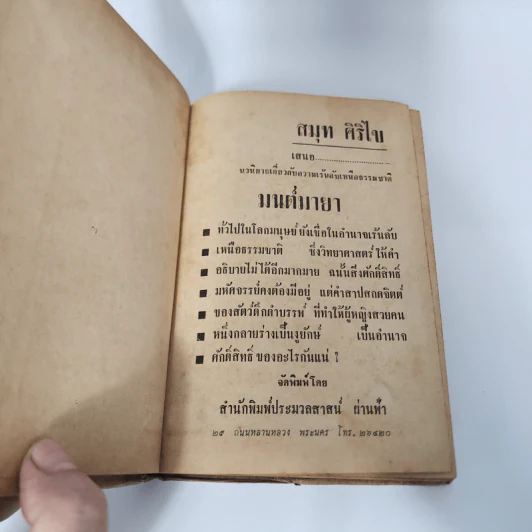 สมุท ศิริไข
เสนอ..............................
นวนิยายเกี่ยวกับความเร้นลับเหนือธรรมชาติ
มนต์มายา
■ ทั่วไปในโลกมนุษย์ ยังเชื่อในอำนาจเร้นลับ
■ เหนือธรรมชาติ ซึ่งวิทยาศาสตร์ให้คำ
■ อธิบายไม่ได้อีกมากมาย ฉนั้นสิ่งศักดิ์สิทธิ์
■ มหัศจรรย์คงต้องมีอยู่ แต่คำสาปสกดจิตต์
■ ของสัตว์ดึกดำบรรพ์ ที่ทำให้ผู้หญิงสวยคน
■ หนึ่งกลายร่างเป็นงูยักษ์ เป็นอำนาจ
■ ศักดิ์สิทธิ์ ของอะไรกันแน่ ?
จัดพิมพ์โดย
สำนักพิมพ์ประมวลสาสน์ ย่านฟ้า
๒๕ ถนนหลานหลวง พระนคร โทร. ๒๖๔๒๐